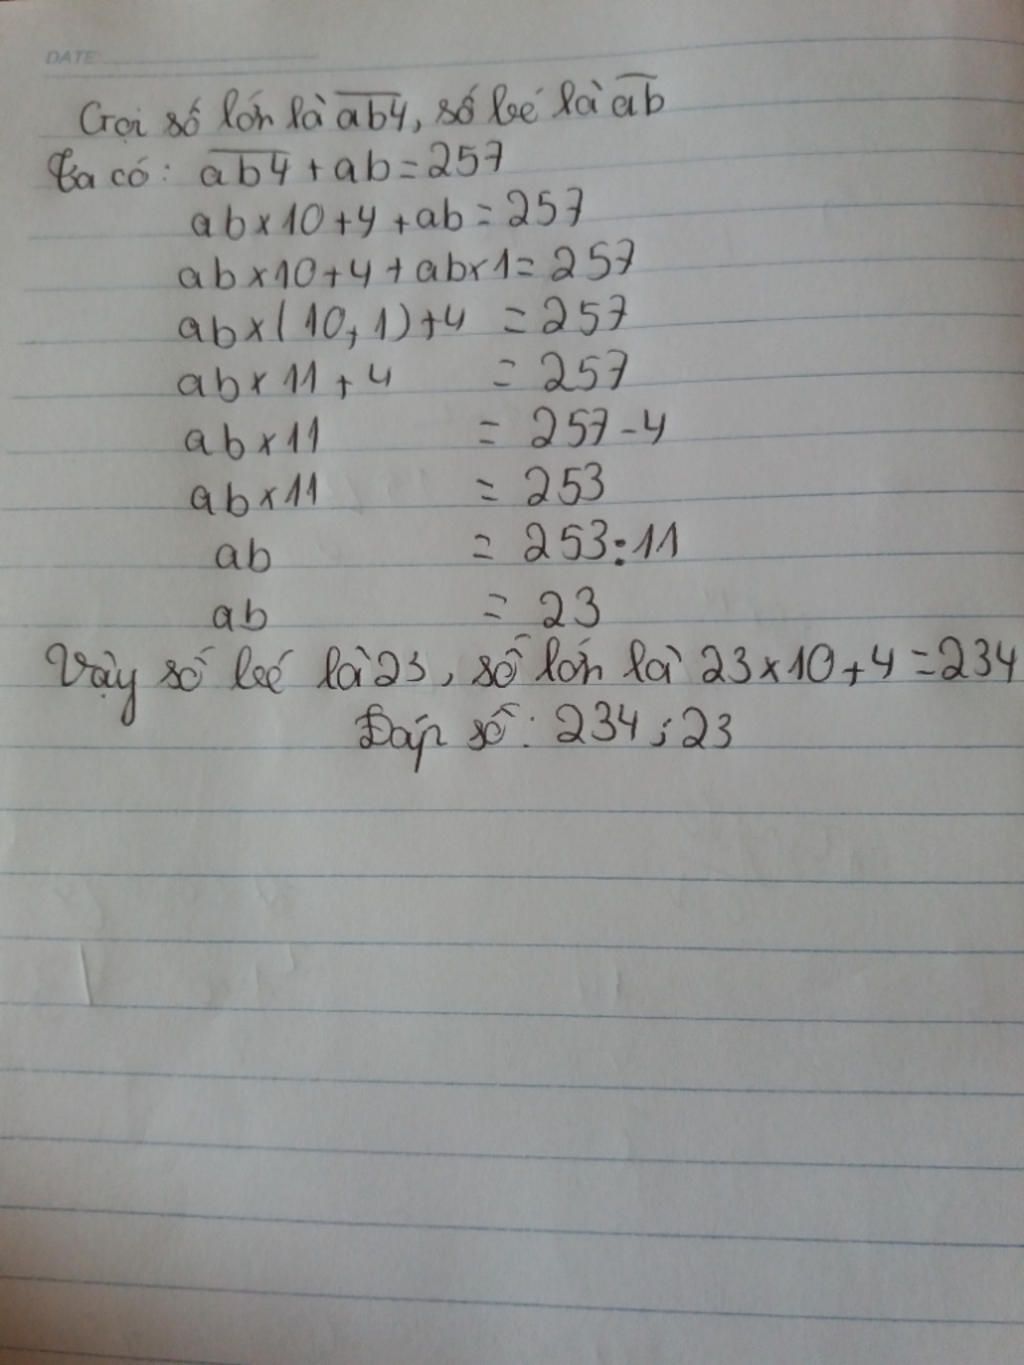 DATE:
Gọi số lớn là ab4, số bé là ab
Ta có: ab4 + ab = 257
ab x 10 + 4 + ab = 257
ab x 10 + 4 + ab x 1 = 257
ab x ( 10 + 1 ) + 4 = 257
ab x 11 + 4 = 257
ab x 11 = 257 - 4
ab x 11 = 253
ab = 253 : 11
ab = 23
Vậy số bé là 23, số lớn là 23 x 10 + 4 = 234
Đáp số: 234 ; 23